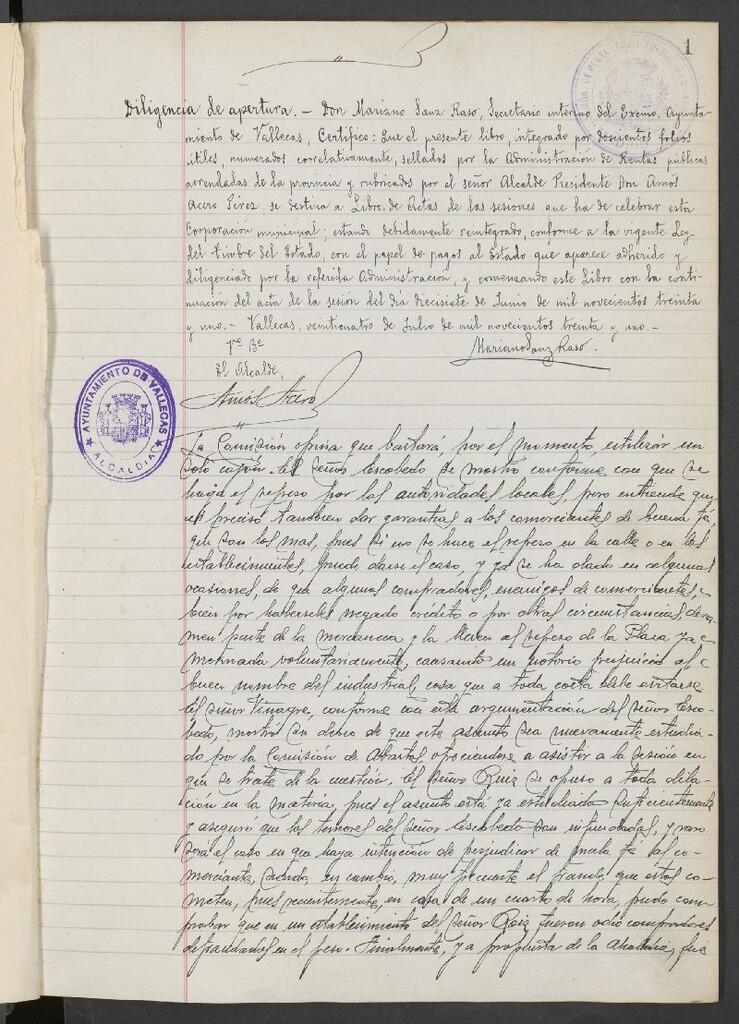 1
Diligencia de apertura. - Don Mariano Sanz Raso, Secretario interino del Excmo. Ayunta-
miento de Vallecas, Certifico: Que el presente libro, integrado por doscientos folios
útiles, numerados correlativamente, sellados por la Administración de Rentas públicas
arrendadas de la provincia y rubricados por el señor Alcalde Presidente Don Amós
Acero Pérez se destina a Libro de Actas de las sesiones que ha de celebrar esta
Corporación municipal; estando debidamente reintegrado, conforme a la vigente Ley
del Timbre del Estado, con el papel de pagos al Estado que aparece adherido y
diligenciado por la referida Administración, y comenzando este Libro con la conti-
nuación del acta de la sesión del día diecisiete de Junio de mil novecientos treinta
y uno. - Vallecas, veinticuatro de Julio de mil novecientos treinta y uno. -
Vº Bº
Mariano Sanz Raso.
El Alcalde,
Amós Acero
AYUNTAMIENTO DE VALLECAS
ALCALDIA
La Comisión opina que bastará, por el momento, utilizar un
solo cajón. El Señor Escobedo se mostró conforme con que se
haga el repeso por las autoridades locales, pero entiende que
es preciso tambien dar garantias a los comerciantes de buena fé,
que son los mas, pues si no se hace el repeso en la calle o en los
establecimientos, puede darse el caso, y ya se ha dado en algunas
ocasiones, de que algunos compradores, enemigos de comerciantes,
bien por haberseles negado crédito o por otras circunstancias,
men parte de la mercancia y la lleven al repeso de la Plaza ya
mermada voluntariamente, causando un notorio perjuicio al
buen nombre del industrial, cosa que a toda costa debe evitarse.
El Señor Vinagre, conforme con esta argumentación del Señor Esco-
bedo, mostró su deseo de que este asunto sea nuevamente estudia-
do por la Comisión de Abastos ofreciendose a asistir a la sesión en
que se trate de la cuestión. El Señor Ruiz se opuso a toda dila-
ción en la materia, pues el asunto está ya estudiado suficientemente
y aseguró que los temores del Señor Escobedo son infundados, y raro
será el caso en que haya intención de perjudicar de mala fé al co-
merciante, siendo, en cambio, muy frecuente el fraude que estos co-
meten, pues recientemente, en cosa de un cuarto de hora, pudo com-
probar que en un establecimiento del Señor Ruiz fueron ocho compradores
defraudados en el peso. Finalmente, y a propuesta de la Alcaldia, fue